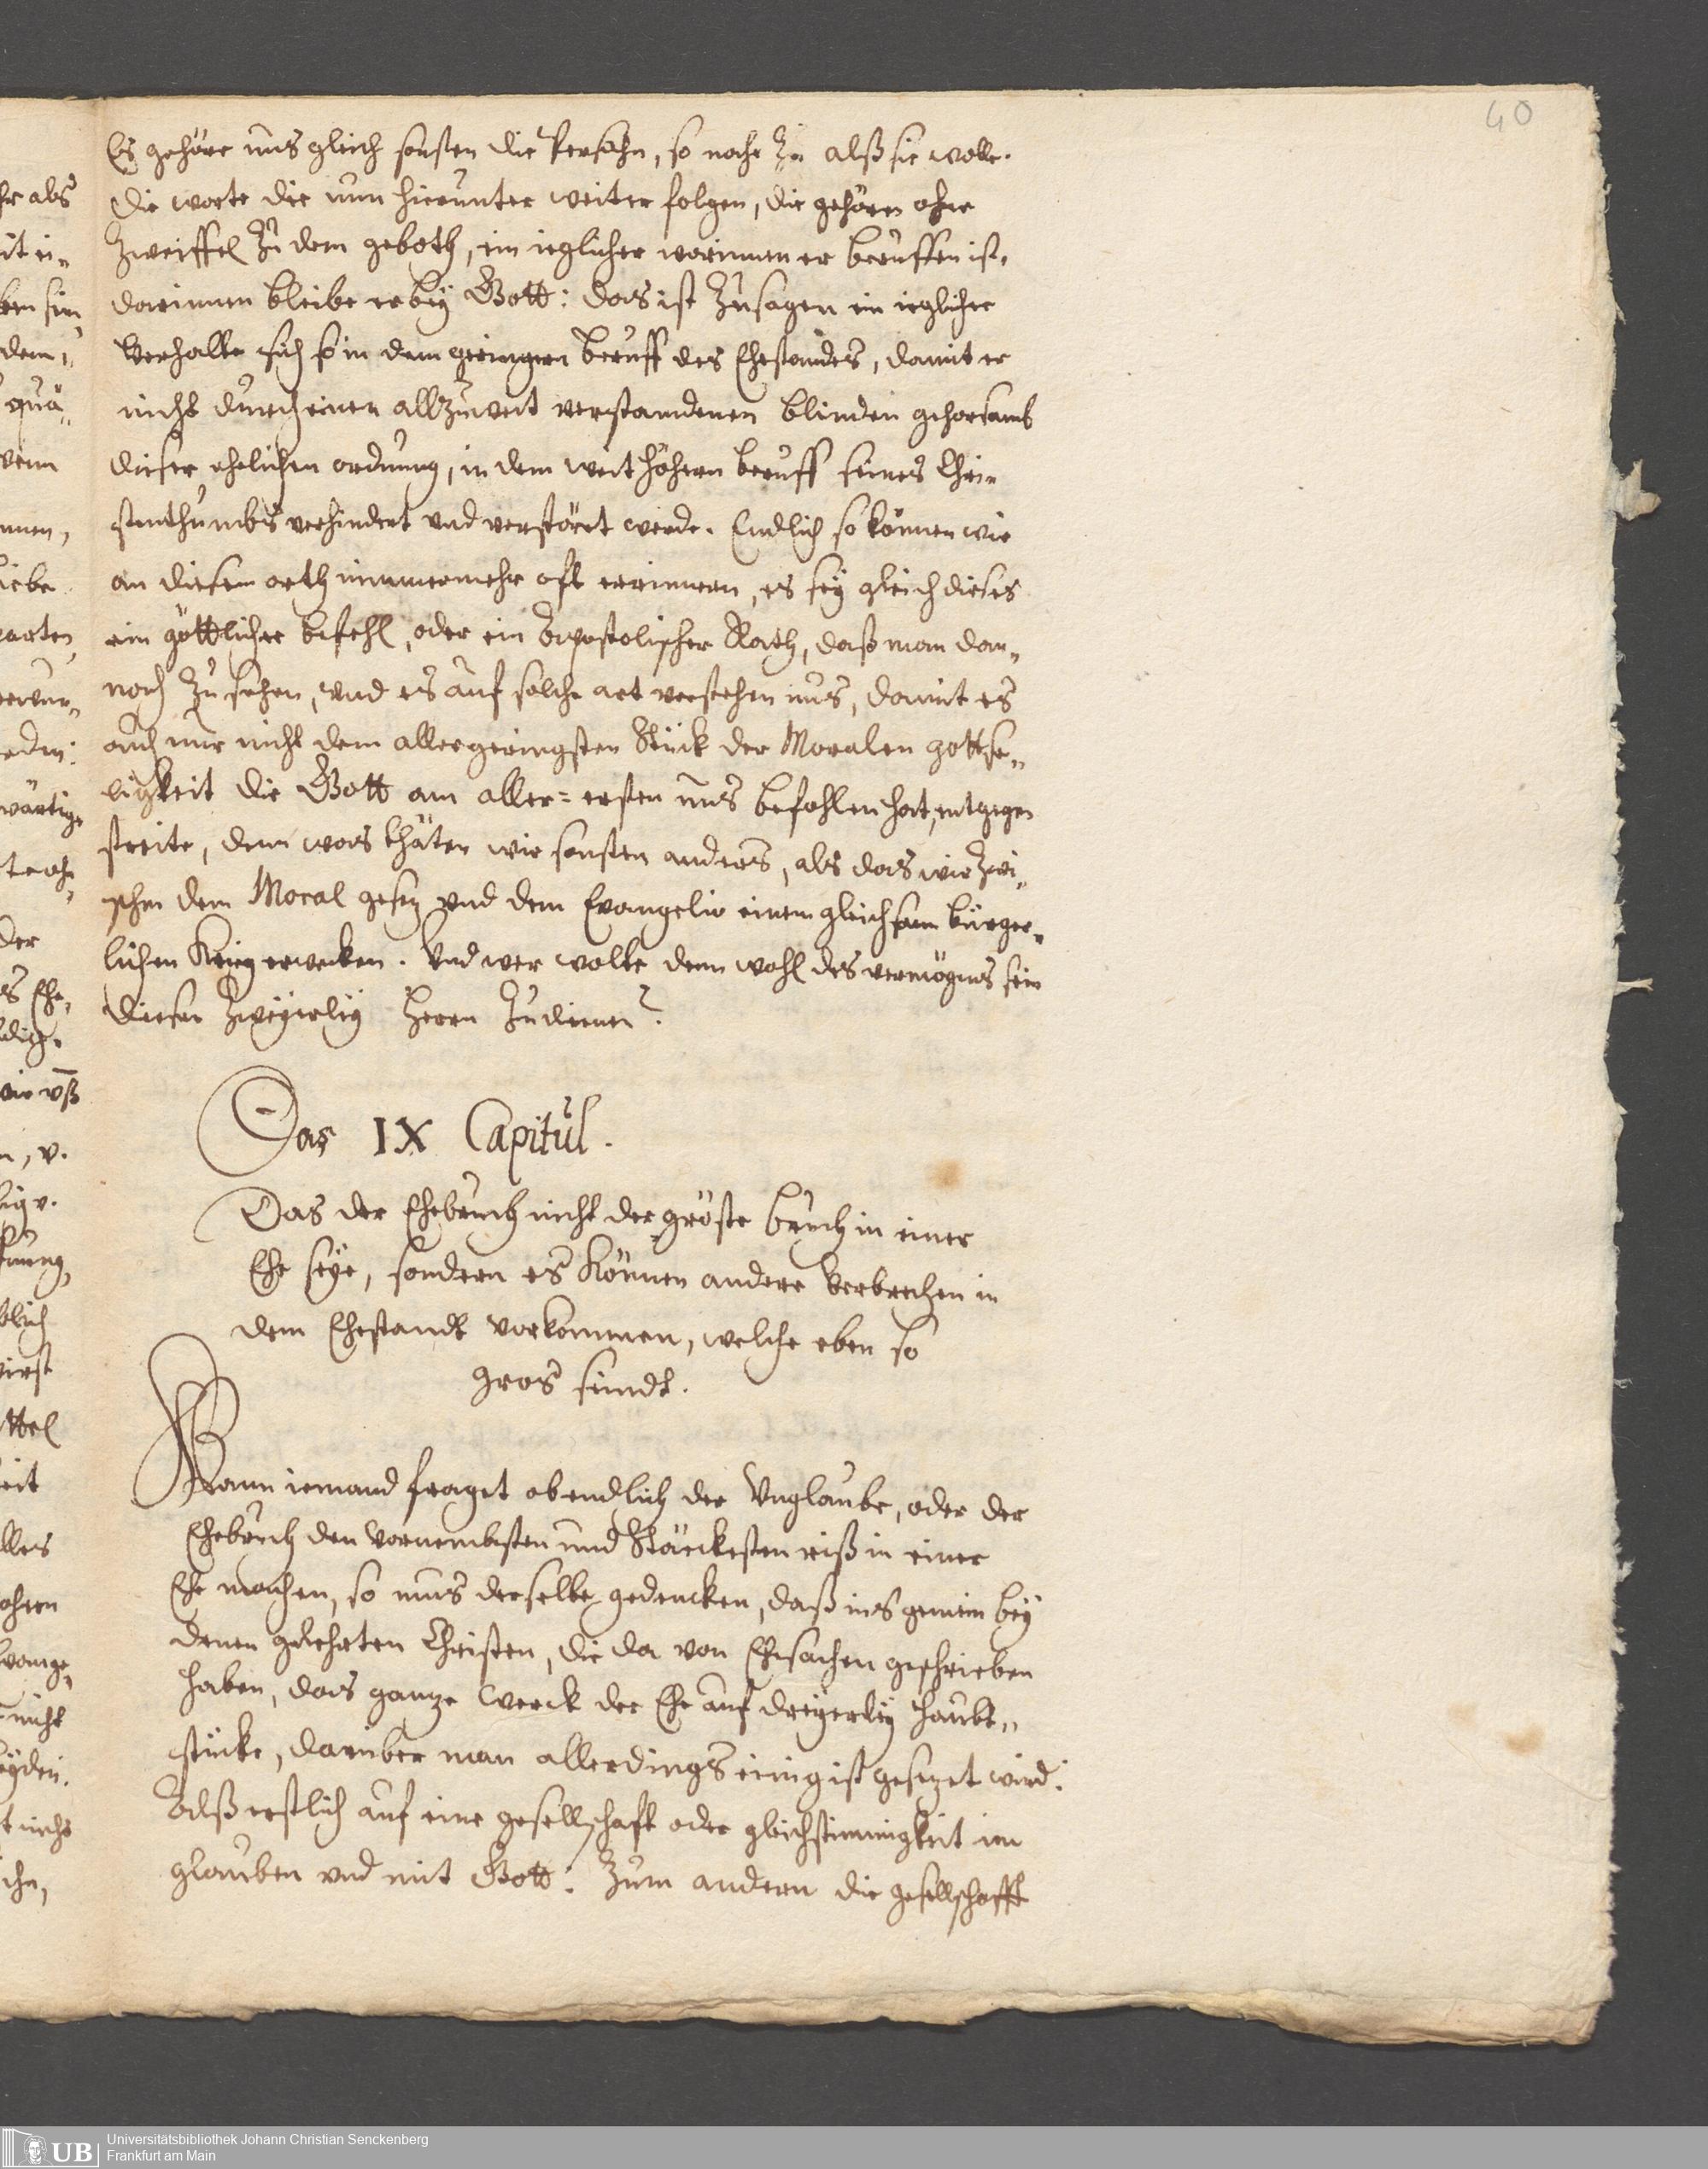 40
Es gehöre uns gleich sonsten die Persohn, so nahe zu alß sie wolle.
Die worte die nun hierunter weiter folgen, die gehören ohne
Zweiffel zu dem geboth, ein ieglicher worinnen er beruffen ist,
darinnen bleibe er bey Gott: das ist zusagen ein ieglicher
Verhalte sich so in dem geringern beruff des Ehestandes, damit er
nicht durch einen allzuweit verstandenen blinden gehorsamb
dieser ehelichen ordnung, in dem weit höhern beruff seines Chri-
stenthumbs verhindert und verstöret werde. Endlich so können wir
an diesem orth nimmermehr oft erinnern, es sey gleich dieses
ein göttlicher befehl, oder ein Apostolischer Rath, daß man dan-
noch zu sehen, und es auf solche art verstehen mus, damit es
auch nur nicht dem allergeringsten Stück der Moralen gottse-
ligkeit die Gott am aller=ersten uns befohlen hat, entgegen
streite, denn was thäten wir sonsten anders, als das wir zwi-
schen dem Moral gesez und dem Evangelio einen gleichsam bürger-
lichen Krieg erwecken. Und wer wolte denn wohl des vermögens sein
dieser zweyerley Herrn zudienen?
Das IX Capitul.
Das der Ehebruch nicht der gröste bruch in einer
Ehe seye, sondern es können andere Verbrechen in
dem Ehestandt vorkommen, welche eben so
gros sindt.
Wann iemand fraget ob endlich der Unglaube, oder der
Ehebruch den vornembsten und Stärckesten riß in einer
Ehe machen, so mus derselbe gedencken, daß ins gemein bey
denen gelehrten Christen, die da von Ehesachen geschrieben
haben, das gantze werck der Ehe auf dreyerley Haubt-
stücke, darüber man allerdings einig ist gesezet wird.
Alß erstlich auf eine gesellschaft oder gleichstimmigkeit im
glauben und mit Gott: Zum andern die gesellschafft
UB
Universitätsbibliothek Johann Christian Senckenberg
Frankfurt am Main